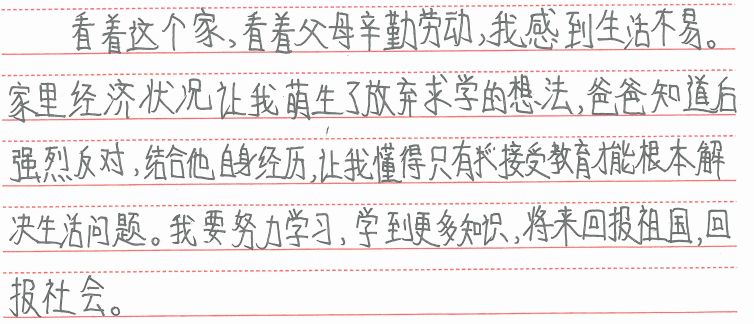 看着这个家,看着父母辛勤劳动,我感到生活不易。
家里经济状况让我萌生了放弃求学的想法,爸爸知道后
强烈反对,结合他自身经历,让我懂得只有接受教育才能根本解
决生活问题。我要努力学习,学到更多知识,将来回报祖国,回
报社会。